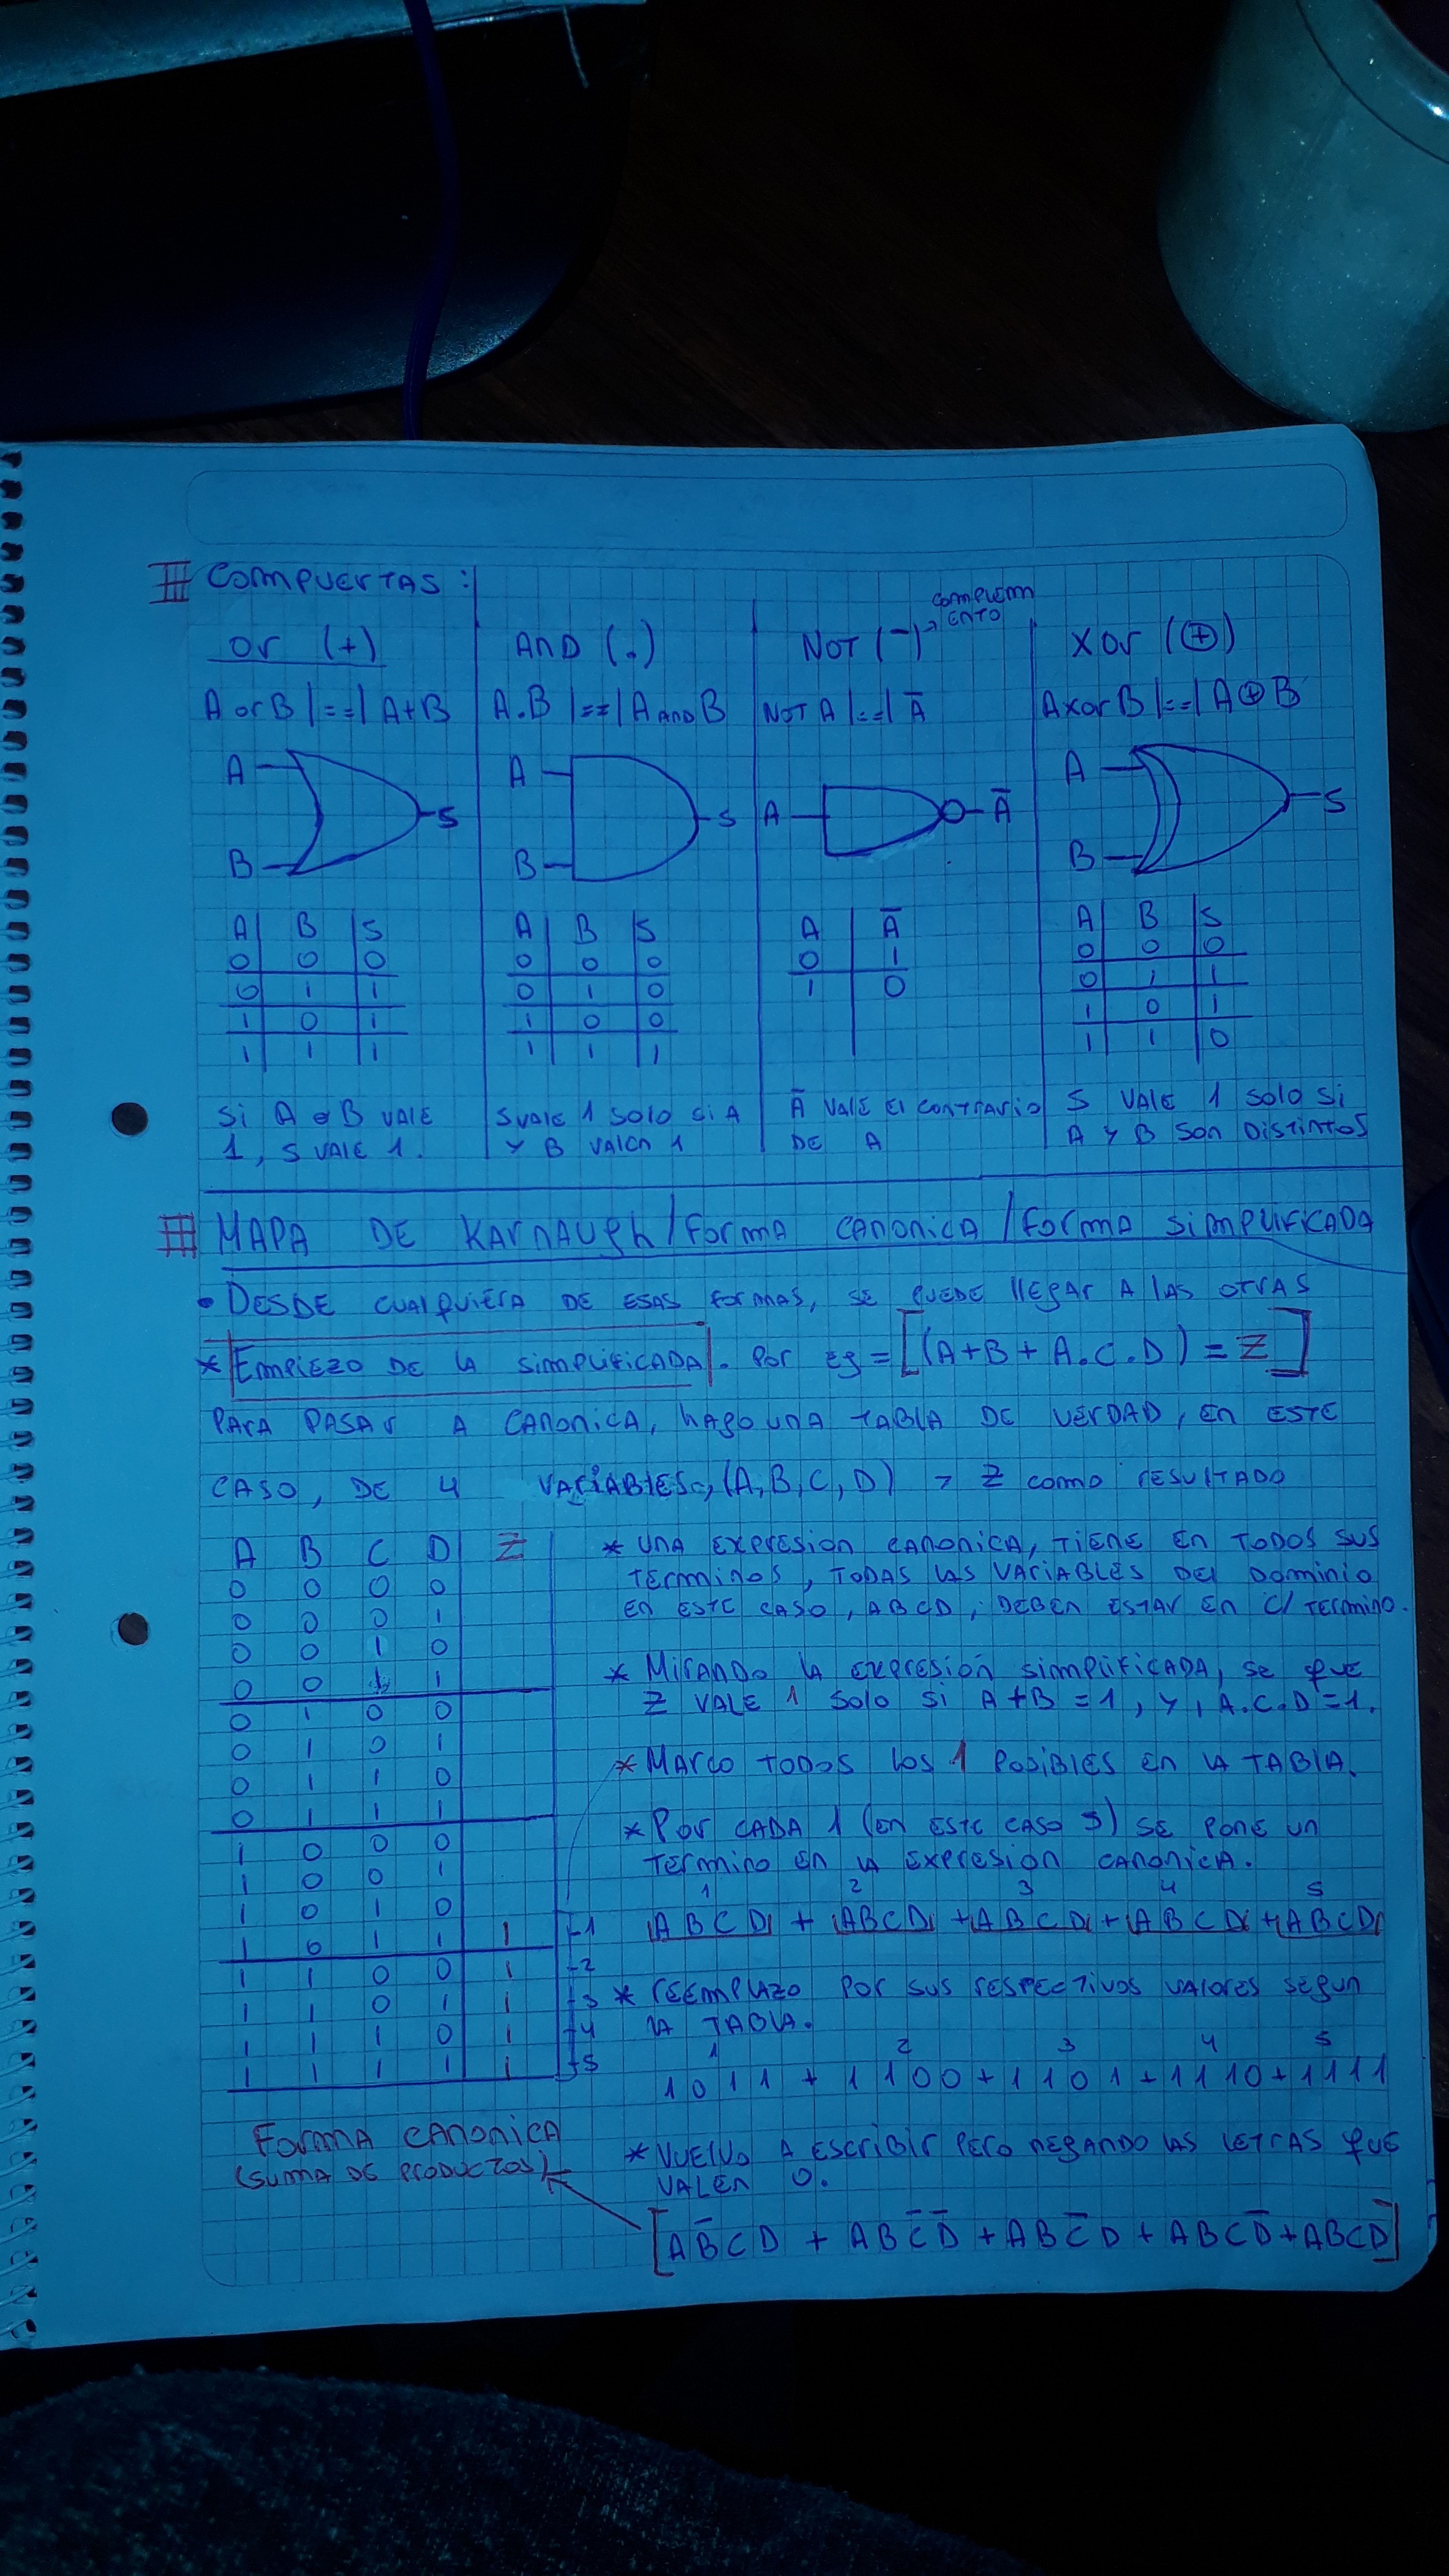 COMPUERTAS:
Or (+)
A or B |==| A+B
A
B
S
A B S
0 0 0
0 1 1
1 0 1
1 1 1
Si A o B VALE
1, S VALE 1.
AND (.)
A.B |==| A AND B
A
B
S
A B S
0 0 0
0 1 0
1 0 0
1 1 1
S VALE 1 SOLO SI A
Y B VALEN 1
NOT (‾) → COMPLEM
ENTO
NOT A |==| Ā
A
Ā
A Ā
0 1
1 0
Ā VALE El CONTRARIO
DE A
XOr (⊕)
A xor B |==| A ⊕ B
A
B
S
A B S
0 0 0
0 1 1
1 0 1
1 1 0
S VALE 1 SOLO Si
A Y B SON DISTINTOS
MAPA DE KARNAUGh / FORMA CANONICA / FORMA SIMPLIFICADA
• DESDE CUALQUIERA DE ESAS FORMAS, SE PUEDE LLEGAR A LAS OTRAS
* EMPIEZO DE LA SIMPLIFICADA. POR Eg = [(A+B + A.C.D) = Z]
PARA PASAR A CANONICA, HAGO UNA TABLA DE VERDAD, EN ESTE
CASO, DE 4 VARIABLES, (A,B,C,D) Y Z COMO RESULTADO
A B C D Z
0 0 0 0
0 0 0 1
0 0 1 0
0 0 1 1
0 1 0 0
0 1 0 1
0 1 1 0
0 1 1 1
1 0 0 0
1 0 0 1
1 0 1 0
1 0 1 1 1 -1
1 1 0 0 1 -2
1 1 0 1 1 -3
1 1 1 0 1 -4
1 1 1 1 1 -5
* UNA EXPRESION CANONICA, TIENE EN TODOS SUS
TERMINOS, TODAS LAS VARIABLES DEL DOMINIO
EN ESTE CASO, ABCD, DEBEN ESTAR EN C/ TERMINO.
* MIRANDO LA EXPRESION SIMPLIFICADA, SE QUE
Z VALE 1 SOLO SI A+B = 1, Y, A.C.D = 1.
* MARCO TODOS LOS 1 POSIBLES EN LA TABLA.
* POR CADA 1 (EN ESTE CASO 5) SE PONE UN
TERMINO EN LA EXPRESION CANONICA.
1 2 3 4 5
ABCD + ABCD + ABCD + ABCD + ABCD
* REEMPLAZO POR SUS RESPECTIVOS VALORES SEGUN
LA TABLA.
1 2 3 4 5
1011 + 1100 + 1101 + 1110 + 1111
* VUELVO A ESCRIBIR PERO NEGANDO LAS LETRAS QUE
VALEN 0.
FORMA CANONICA
(SUMA DE PRODUCTOS)
[AB̄CD + ABC̄D̄ + ABC̄D + ABCD̄ + ABCD]